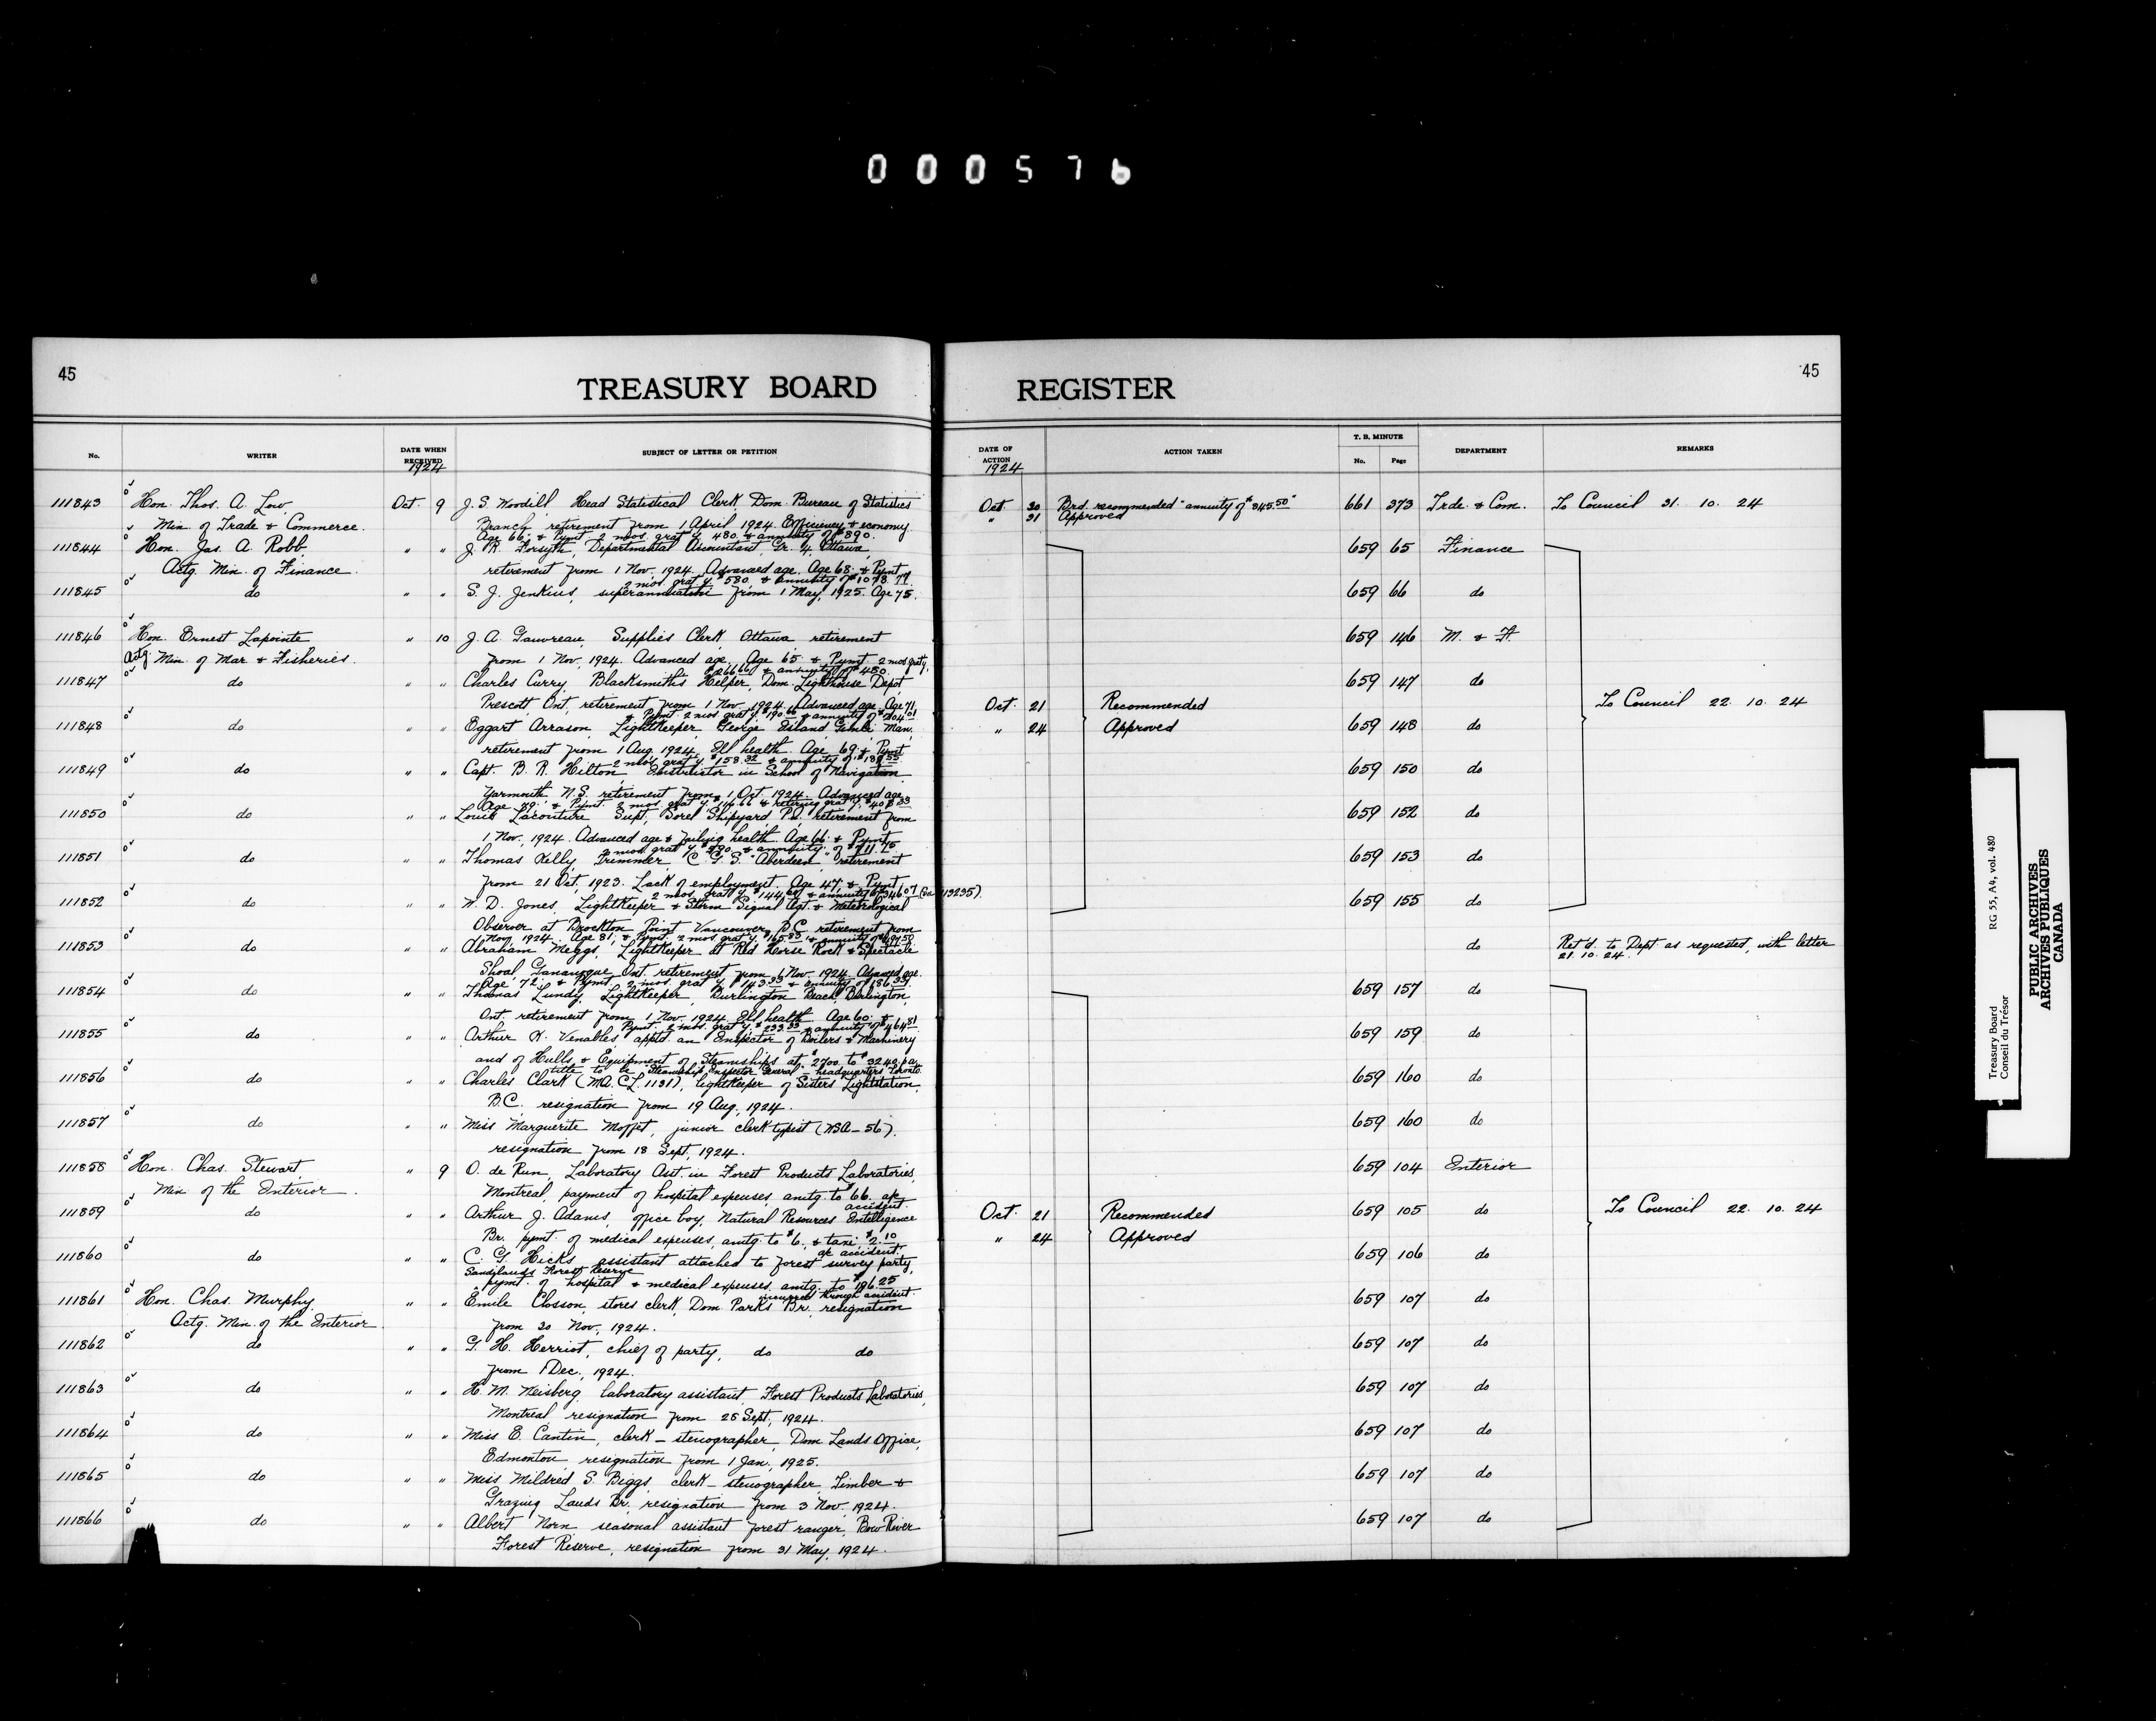 000576
45
TREASURY BOARD
REGISTER
45
No.
WRITER
DATE WHEN RECEIVED
1924
SUBJECT OF LETTER OR PETITION
DATE OF ACTION
1924
ACTION TAKEN
T. B. MINUTE
No. Page
DEPARTMENT
REMARKS
111843 Hon. Thos. A. Low, Oct. 9 J. S. Woodill, Head Statistical Clerk, Dom. Bureau of Statistics Oct 30 Brd. recommended "annuity of $845.50" 661 373 Trde. & Com. To Council 31. 10. 24
Min. of Trade & Commerce. Branch retirement from 1 April, 1924. Efficiency & economy " 31 Approved
Age 66; & Pymt. 2 mos. grat'y. 480. & annuity of $890.
111844 Hon. Jas. A. Robb, " " J. R. Forsyth, Departmental Accountant, Gr. 4, Ottawa, 659 65 Finance
Actg. Min. of Finance. retirement from 1 Nov. 1924. Advanced age. Age 68; & Pymt
2 mos. grat'y. $580. & annuity of
111845 do " " S. J. Jenkins, superannuation from 1 May, 1925. Age 75. 659 66 do
111846 Hon. Ernest Lapointe " 10 J. A. Gauvreau, Supplies Clerk, Ottawa retirement 659 146 M. & F.
Actg. Min. of Mar. & Fisheries. from 1 Nov., 1924. Advanced age, Age 65; & Pymt. 2 mos. graty.
$266.66 & annuity of $480.
111847 do " " Charles Curry, Blacksmith's Helper, Dom. Lighthouse Depot, 659 147 do
Prescott Ont., retirement from 1 Nov. 1924. Advanced age. Age 71, Oct. 21 Recommended To Council 22. 10. 24
& Pymt. 2 mos grat'y. & annuity of
111848 do " " Eggart Arrason, Lightkeeper, George Island, Gimli, Man., " 24 Approved 659 148 do
retirement from 1 Aug. 1924. Ill health. Age 69; & Pymt
2 mos. grat'y. $158.32 & annuity of
111849 do " " Capt. B. R. Hilton, Instructor in School of Navigation 659 150 do
Yarmouth, N.S. retirement from 1 Oct. 1924. Advanced age.
& Pymt. 2 mos. grat'y. $116.66 & retiring grat'y. $408.33
111850 do " " Louis Lacouture Supt. Sorel Shipyard, P.Q. retirement from 659 152 do
1 Nov., 1924. Advanced age & failing health. Age 66; & Pymt
2 mos. grat'y. & annuity of
111851 do " " Thomas Kelly, Trimmer C. G. S. "Aberdeen" retirement 659 153 do
from 21 Oct., 1923. Lack of employment. Age 47; & Pymt
2 mos. grat'y. & annuity of
111852 do " " W. D. Jones, Lightkeeper & Storm Signal Agt. & Meteorological 659 155 do
Observer at Brockton Point, Vancouver, B.C. retirement from
1 Nov. 1924. Age 81; & Pymt. 2 mos grat'y. $165.83 & annuity of
111853 do " " Abraham Meggs, Lightkeeper at Red Horse Rock & Spectacle do Ret'd. to Dept. as requested, with letter
21. 10. 24.
Shoal, Gananoque, Ont. retirement from 1 Nov. 1924. Advanced age.
Age 72; & Pymt. 2 mos. grat'y. $143.33 & annuity of
111854 do " " Thomas Lundy, Lightkeeper, Burlington Beach, Burlington, 659 157 do
Ont. retirement from 1 Nov. 1924. Ill health. Age 60; &
Pymt. 2 mos. grat'y. $233.33 & annuity of $464.81
111855 do " " Arthur K. Venables, apptd. an Inspector of Boilers & Machinery 659 159 do
and of Hulls & Equipment of Steamships at $2700. to $3240. pa.
title to be "Steamship Inspector General" headquarters Toronto
111856 do " " Charles Clark (MA. CL. 1131), lightkeeper of Sisters Lightstation, 659 160 do
B.C. resignation from 19 Aug., 1924.
111857 do " " Miss Marguerite Moffet, junior clerk typist (NSA-56). 659 160 do
resignation from 18 Sept., 1924.
111858 Hon. Chas. Stewart, " 9 O. de Run, Laboratory Asst. in Forest Products Laboratories, 659 104 Interior
Min. of the Interior. Montreal, payment of hospital expenses, amtg. to $66. a/c
accident.
111859 do " " Arthur J. Adams, office boy, Natural Resources Intelligence Oct. 21 Recommended 659 105 do To Council 22. 10. 24
Br. pymt. of medical expenses, amtg. to $6. & taxi $2.10 " 24 Approved
a/c accident.
111860 do " " C. G. Hicks, assistant attached to forest survey party, 659 106 do
Sandilands Forest Reserve
pymt. of hospital & medical expenses amtg. to $196.25
incurred through accident.
111861 Hon. Chas. Murphy, " " Emile Closson, stores clerk, Dom. Parks Br. resignation 659 107 do
Actg. Min. of the Interior. from 30 Nov., 1924.
111862 do " " G. H. Herriot, chief of party, do do 659 107 do
from 1 Dec., 1924.
111863 do " " H. M. Neisberg, laboratory assistant, Forest Products Laboratories, 659 107 do
Montreal, resignation from 25 Sept., 1924.
111864 do " " Miss E. Cantin, clerk-stenographer, Dom. Lands Office, 659 107 do
Edmonton, resignation from 1 Jan., 1925.
111865 do " " Miss Mildred S. Biggs, clerk-stenographer, Timber & 659 107 do
Grazing Lands Br. resignation from 3 Nov. 1924.
111866 do " " Albert Norn, seasonal assistant forest ranger, Bow River 659 107 do
Forest Reserve, resignation from 31 May, 1924.
Treasury Board
Conseil du Trésor
RG 55, A4, vol. 480
PUBLIC ARCHIVES
ARCHIVES PUBLIQUES
CANADA